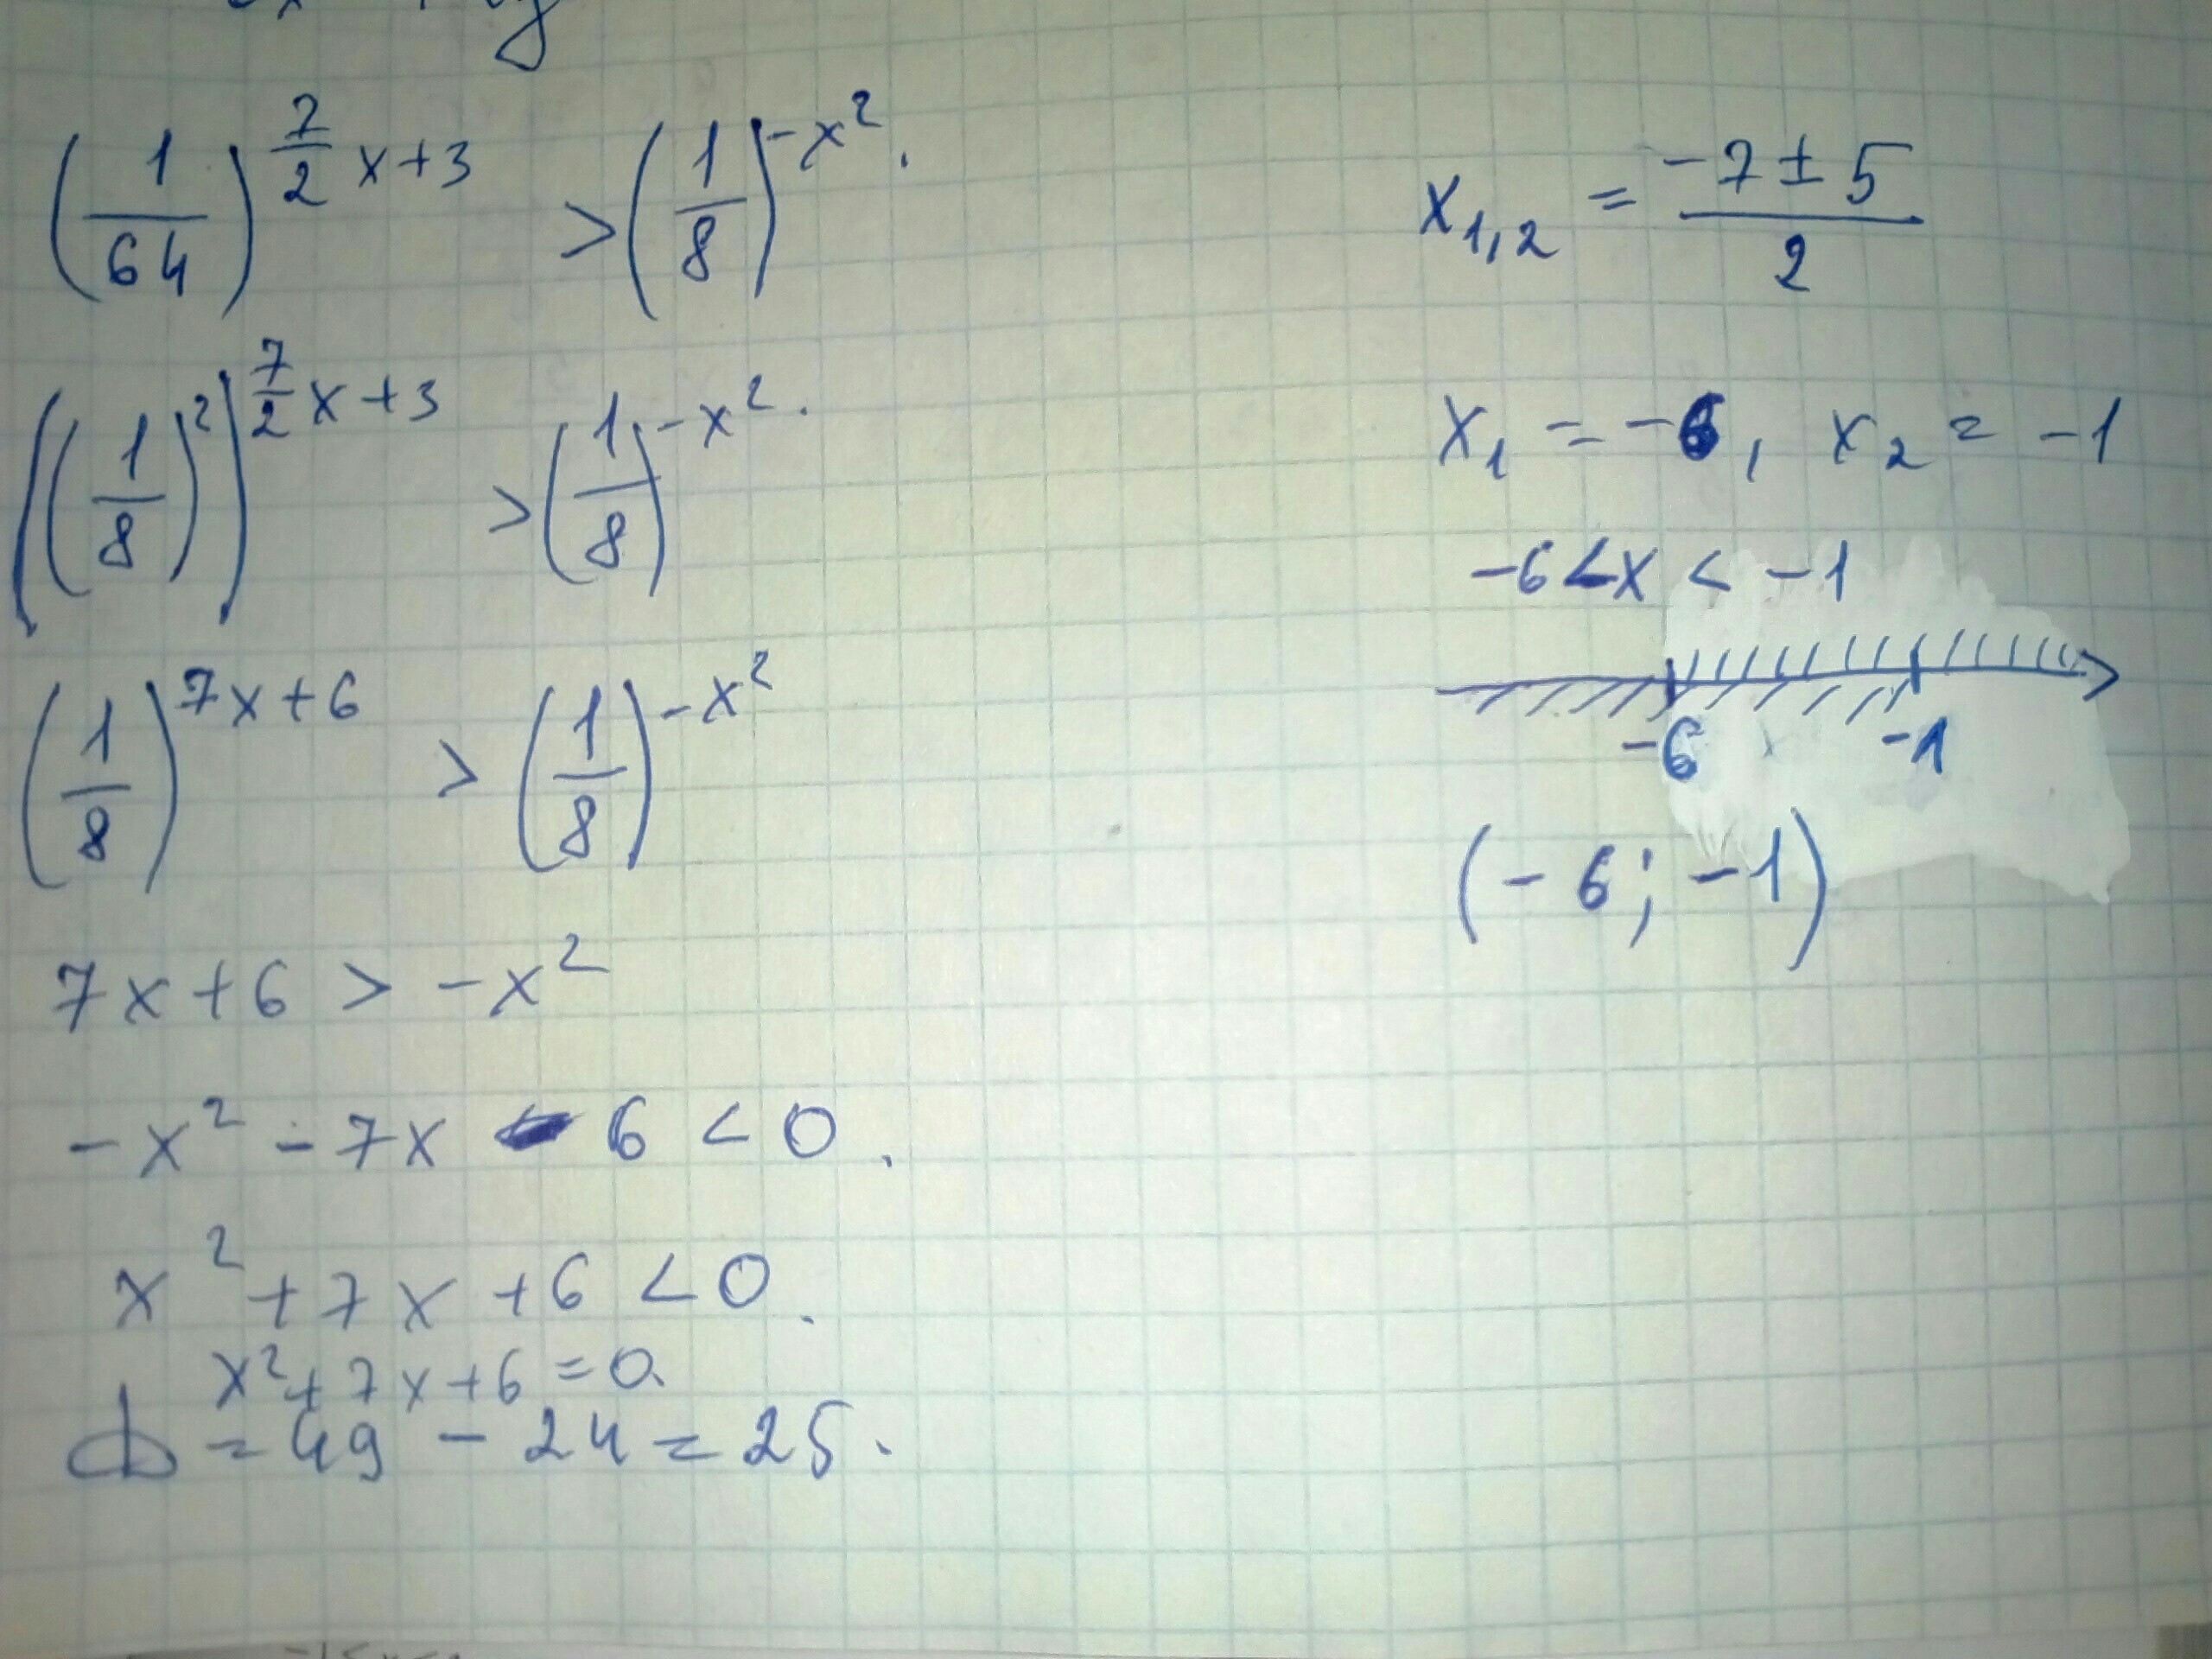 (1/64)^(7/2 x+3) > (1/8)^(-x²).
((1/8)²)^(7/2 x+3) > (1/8)^(-x²).
(1/8)^(7x+6) > (1/8)^(-x²)
7x+6 > -x²
-x² - 7x - 6 < 0.
x² + 7x + 6 < 0.
x²+7x+6=0.
D = 49 - 24 = 25.
x₁,₂ = (-7 ± 5)/2
x₁ = -6, x₂ = -1
-6 < x < -1
-6 -1
(-6; -1)